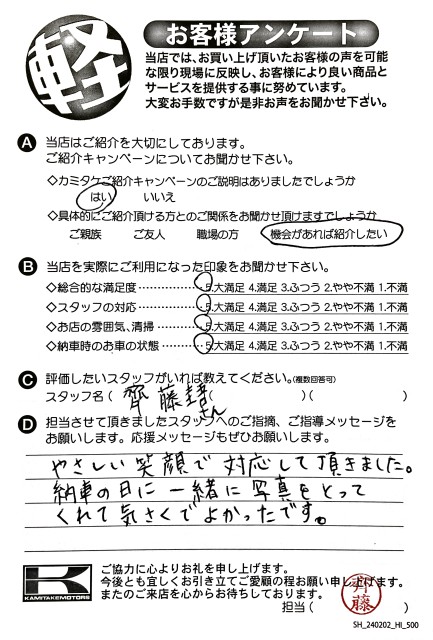 軽
お客様アンケート
当店では、お買い上げ頂いたお客様の声を可能
な限り現場に反映し、お客様により良い商品と
サービスを提供する事に努めています。
大変お手数ですが是非お声をお聞かせ下さい。
A 当店はご紹介を大切にしております。
ご紹介キャンペーンについてお聞かせ下さい。
◇カミタケご紹介キャンペーンのご説明はありましたでしょうか
はい いいえ
◇具体的にご紹介頂ける方とのご関係をお聞かせ頂けますでしょうか
ご親族 ご友人 職場の方 機会があれば紹介したい
B 当店を実際にご利用になった印象をお聞かせ下さい。
◇総合的な満足度 5.大満足 4.満足 3.ふつう 2.やや不満 1.不満
◇スタッフの対応 5.大満足 4.満足 3.ふつう 2.やや不満 1.不満
◇お店の雰囲気、清掃 5.大満足 4.満足 3.ふつう 2.やや不満 1.不満
◇納車時のお車の状態 5.大満足 4.満足 3.ふつう 2.やや不満 1.不満
C 評価したいスタッフがいれば教えてください。(複数回答可)
スタッフ名 ( 齊藤 さん )( )( )
D 担当させて頂きましたスタッフへのご指摘、ご指導メッセージを
お願いします。応援メッセージもぜひお願いします。
やさしい笑顔で対応して頂きました。
納車の日に一緒に写真をとって
くれて気さくでよかったです。
K
KAMITAKEMOTORS
ご協力に心よりお礼を申し上げます。
今後とも宜しくお引き立てご愛顧の程お願い申し上げます。
またのご来店を心からお待ちしております。
担当 ( 齊藤 )
SH_240202_HI_500